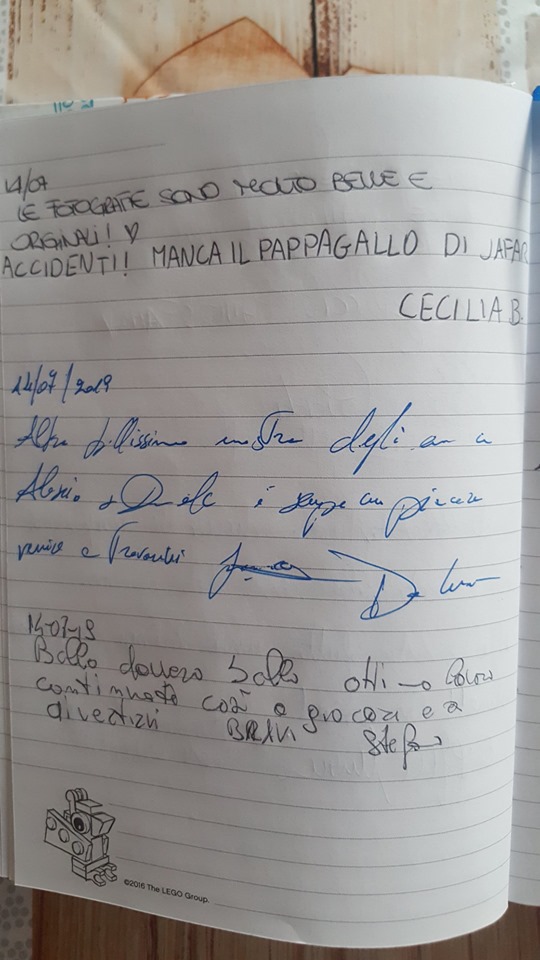 14/07
LE FOTOGRAFIE SONO MOLTO BELLE E
ORGINALI! ♡
ACCIDENTI! MANCA IL PAPPAGALLO DI JAFAR
CECILIA B.
14/07/2019
Altra bellissima mostra degli amici
Alessio e Daniele è sempre un piacere
venire a
14-07-19
Bello davvero bello ottimo lavoro
continuate così a giocare e a
divertirvi BRAVI Stefano
©2016 The LEGO Group.